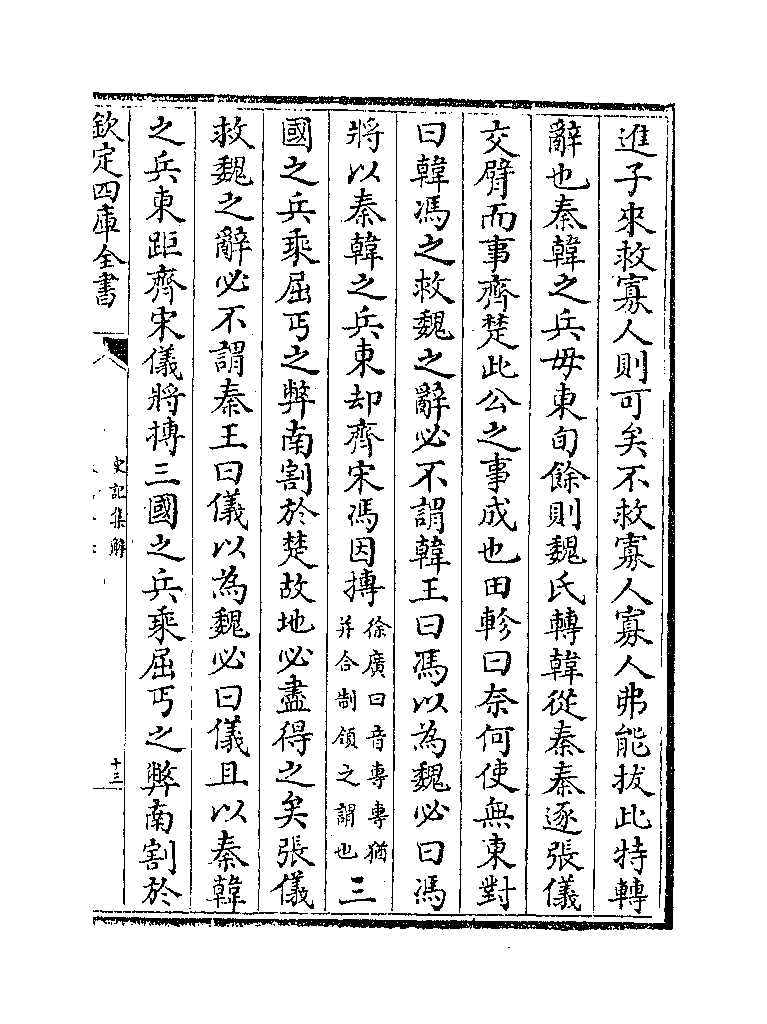 進子來救寡人則可矣不救寡人寡人弗能拔此特轉
辭也秦韓之兵毋東旬餘則魏氏轉韓從秦秦逐張儀
交臂而事齊楚此公之事成也田軫曰奈何使無東對
曰韓馮之救魏之辭必不謂韓王曰馮以為魏必曰馮
將以秦韓之兵東却齊宋馮因摶徐廣曰音專專猶并合制領之謂也三
國之兵乘屈丐之弊南割於楚故地必盡得之矣張儀
救魏之辭必不謂秦王曰儀以為魏必曰儀且以秦韓
之兵東距齊宋儀將摶三國之兵乘屈丐之弊南割於
欽定四庫全書
史記集解
十三